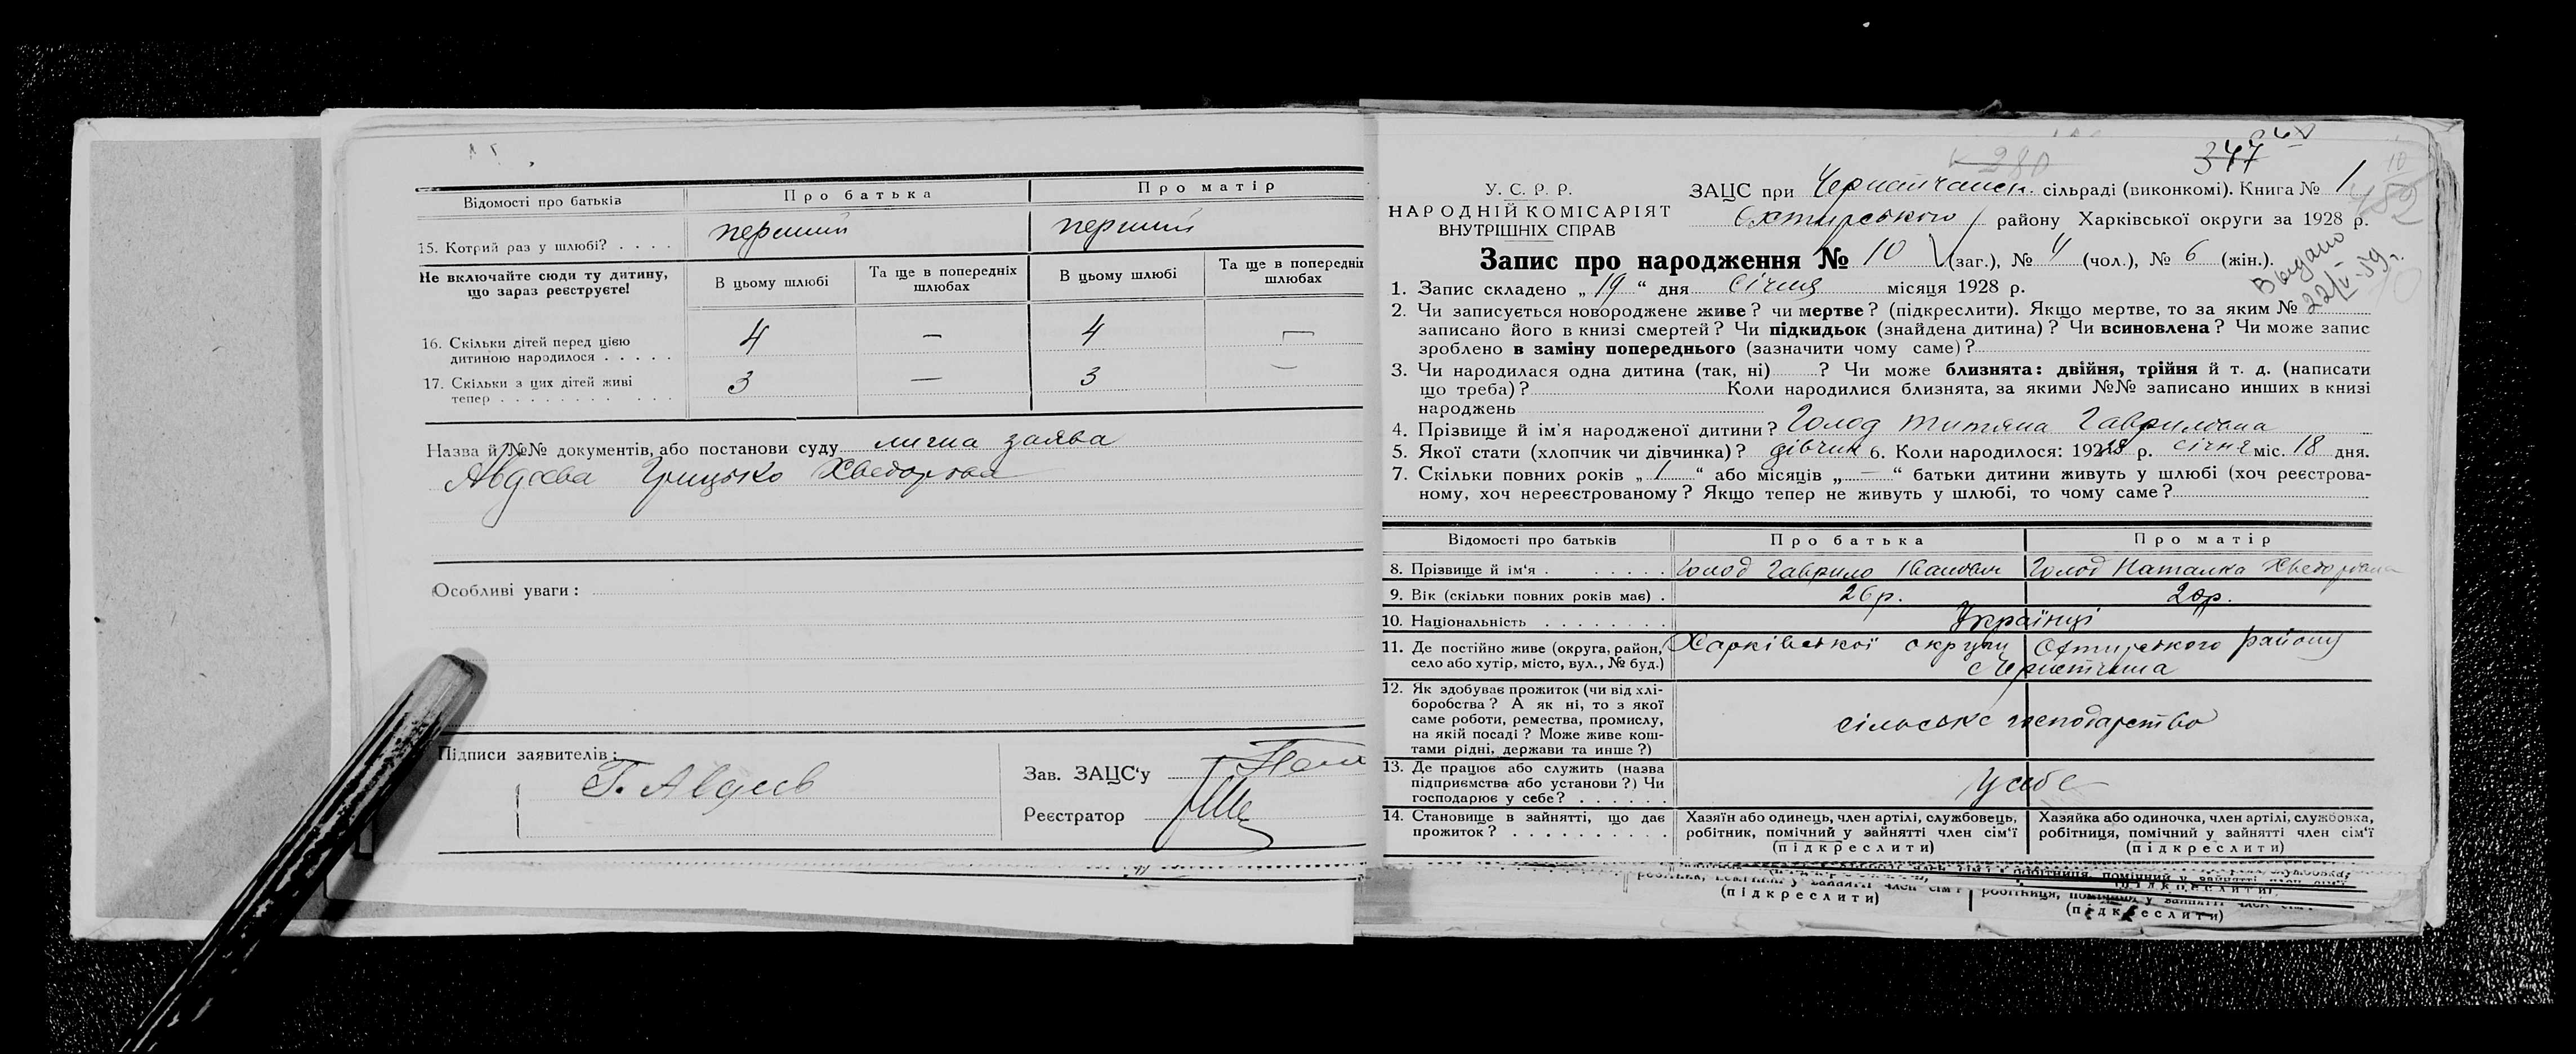 Відомості про батьків
Про батька
Про матір
15. Котрий раз у шлюбі? . . . .
перший
перший
Не включайте сюди ту дитину,
що зараз реєструєте!
В цьому шлюбі
Та ще в попередніх
шлюбах
В цьому шлюбі
Та ще в попередніх
шлюбах
16. Скільки дітей перед цією
дитиною народилося . . . . .
4 — 4 —
17. Скільки з цих дітей живі
тепер . . . . . . . . . . .
3 — 3 —
Назва й №№ документів, або постанови суду лична заява
Авдєєва Грицько
Особливі уваги :
Підписи заявителів :
Г. Авдєєв
Зав. ЗАЦС'у
Реєстратор
280
347
10
У. С. Р. Р.
НАРОДНІЙ КОМІСАРІЯТ
ВНУТРІШНІХ СПРАВ
ЗАЦС при сільраді (виконкомі). Книга № 1
Охтирського району Харківської округи за 1928 р.
Запис про народження № 10 (заг.), № 4 (чол.), № 6 (жін.).
Выдано
22/V-59г.
1. Запис складено „ 19 “ дня січня місяця 1928 р.
2. Чи записується новороджене живе? чи мертве? (підкреслити). Якщо мертве, то за яким №
записано його в книзі смертей? Чи підкидьок (знайдена дитина)? Чи всиновлена? Чи може запис
зроблено в заміну попереднього (зазначити чому саме)?
3. Чи народилася одна дитина (так, ні) ? Чи може близнята: двійня, трійня й т. д. (написати
що треба)? Коли народилися близнята, за якими №№ записано инших в книзі
народжень
4. Прізвище й ім'я народженої дитини? Голод Титяна Гавриловна
5. Якої стати (хлопчик чи дівчинка)? дівчин 6. Коли народилося: 1928 р. січня міс. 18 дня.
7. Скільки повних років „ 1 “ або місяців „ — “ батьки дитини живуть у шлюбі (хоч реєстрова-
ному, хоч нереєстрованому? Якщо тепер не живуть у шлюбі, то чому саме?
Відомості про батьків
Про батька
Про матір
8. Прізвище й ім'я . . . . . . . .
Голод Гаврило Іванович
Голод Наталка Хведоровна
9. Вік (скільки повних років має) .
26 р.
10. Національність . . . . . . . .
Українці
11. Де постійно живе (округа, район,
село або хутір, місто, вул., № буд.)
Харківської округи Охтирського району
12. Як здобуває прожиток (чи від хлі-
боробства? А як ні, то з якої
саме роботи, ремества, промислу,
на якій посаді? Може живе кош-
тами рідні, держави та инше?)
сільське господарство
13. Де працює або служить (назва
підприємства або установи?) Чи
господарює у себе? . . . . . .
у себе
14. Становище в зайнятті, що дає
прожиток? . . . . . . . . . .
Хазяїн або одинець, член артілі, службовець,
робітник, помічний у зайнятті член сім'ї
(підкреслити)
Хазяйка або одиночка, член артілі, службовка,
робітниця, помічний у зайнятті член сім'ї
(підкреслити)
(підкреслити)
(підкреслити)